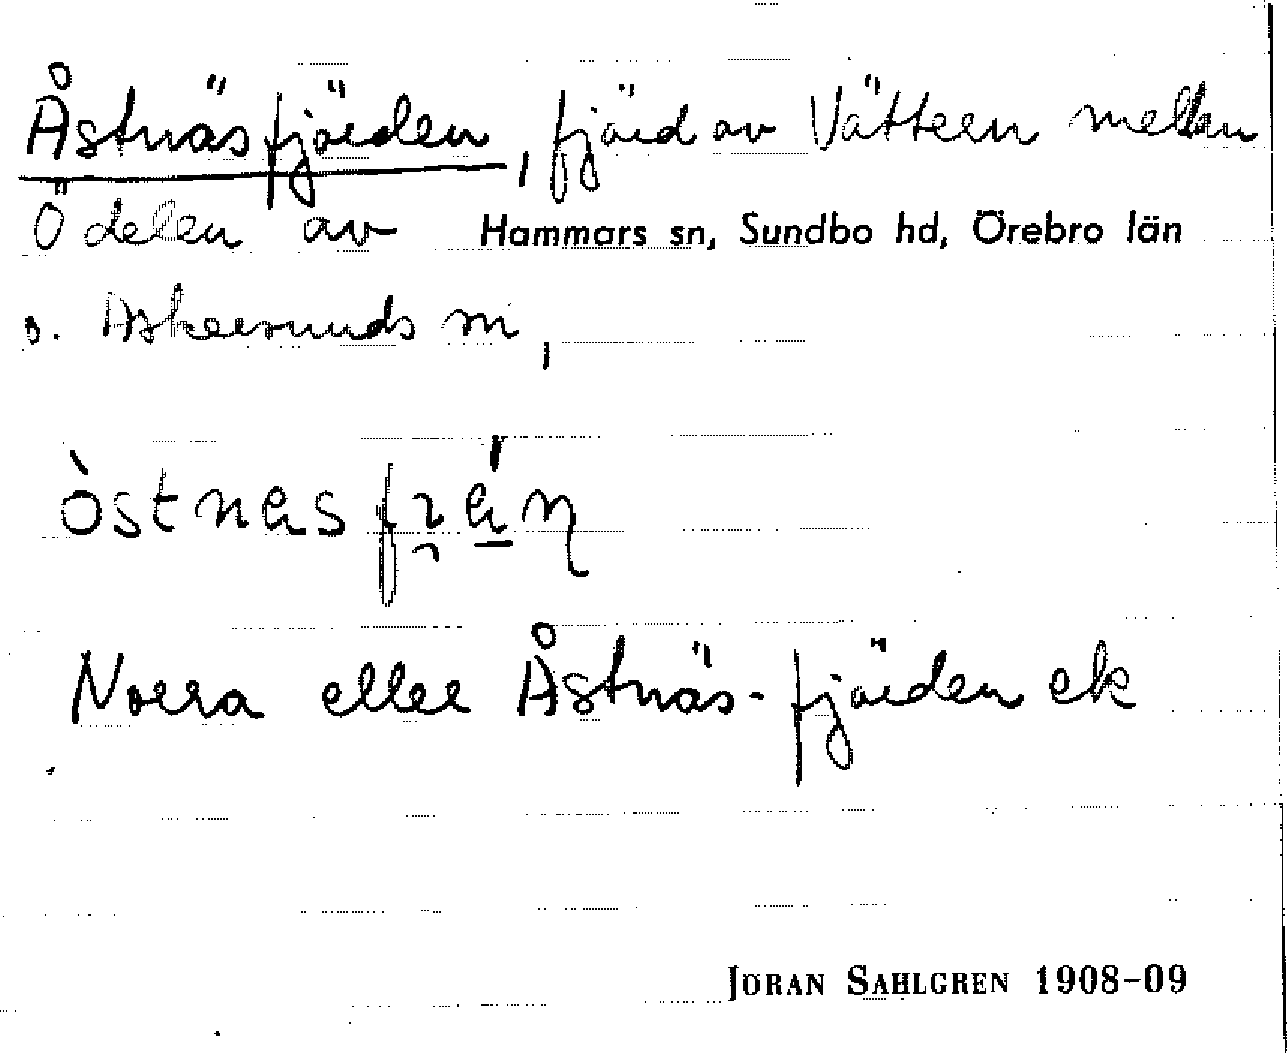 Åstnäsfjärden, fjärd av Vättern mellan
Ödelen av Hammars sn, Sundbo hd, Örebro län
o. Askersunds sn,
Norra eller Åstnäs-fjärden ek
JÖRAN SAHLGREN 1908-09